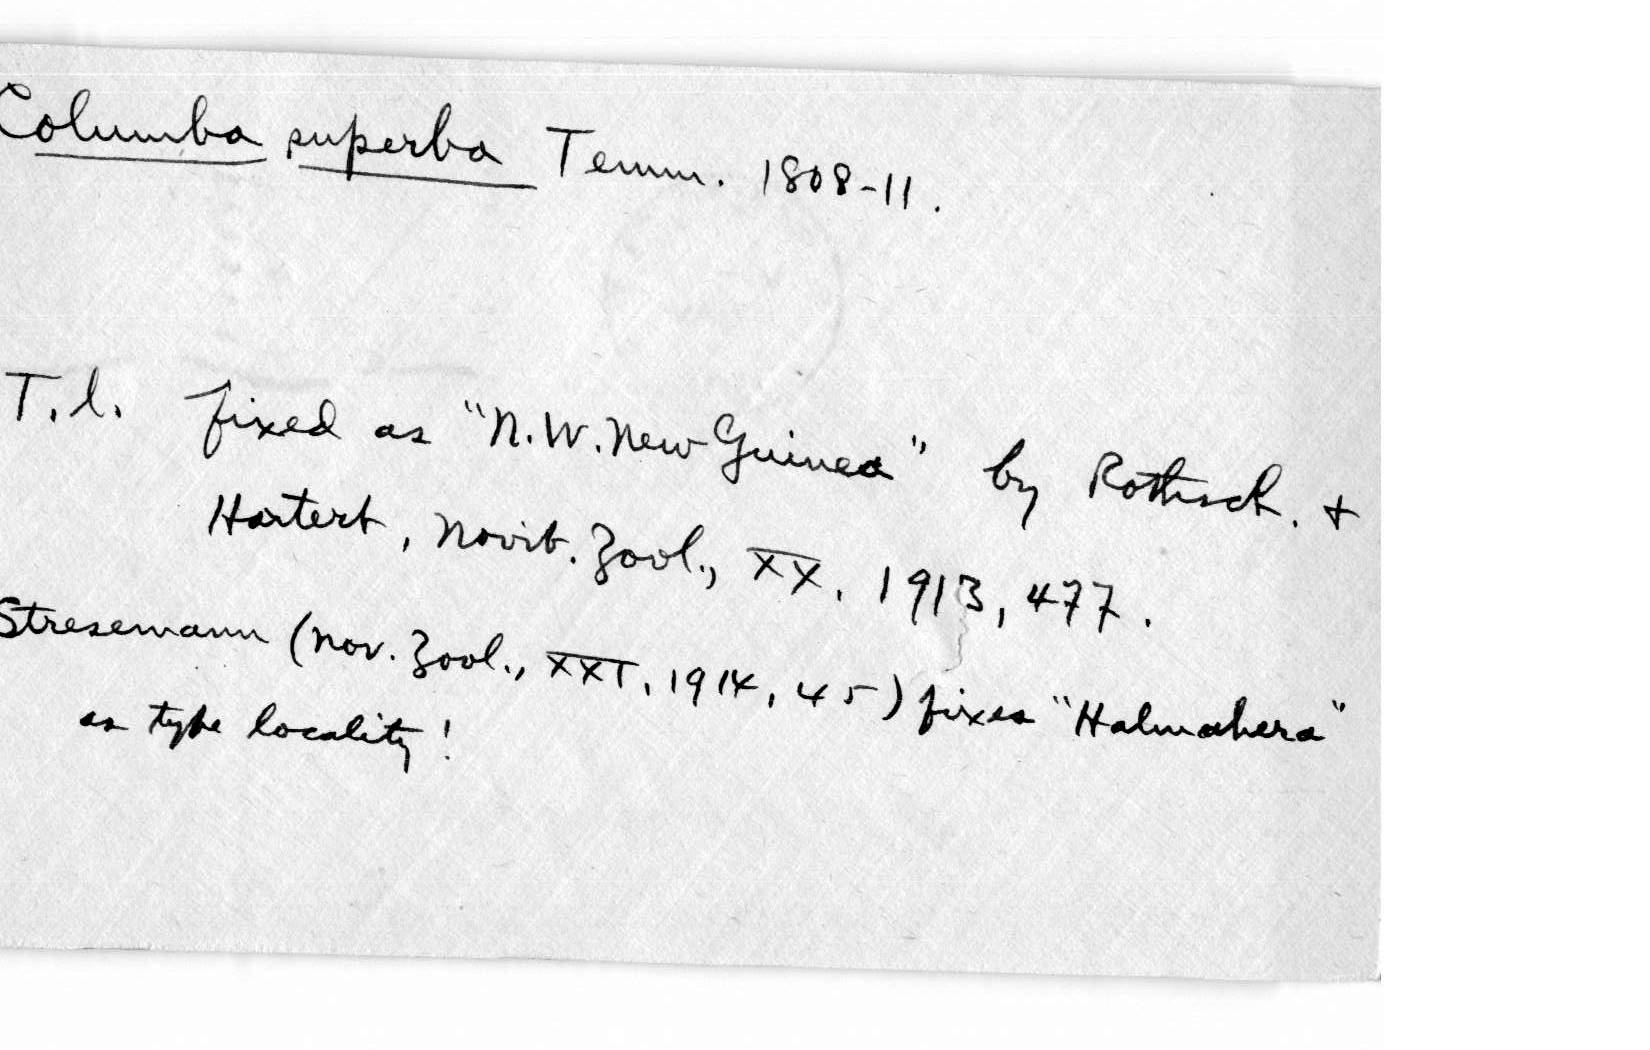 Columba superba Temm. 1808-11.
T.l. fixed as "N.W. New Guinea" by Rothsch. +
Hartert, Novit. Zool., XX, 1913, 477.
Stresemann (Nov. Zool., XXI, 1914, 45) fixes "Halmahera"
as type locality!